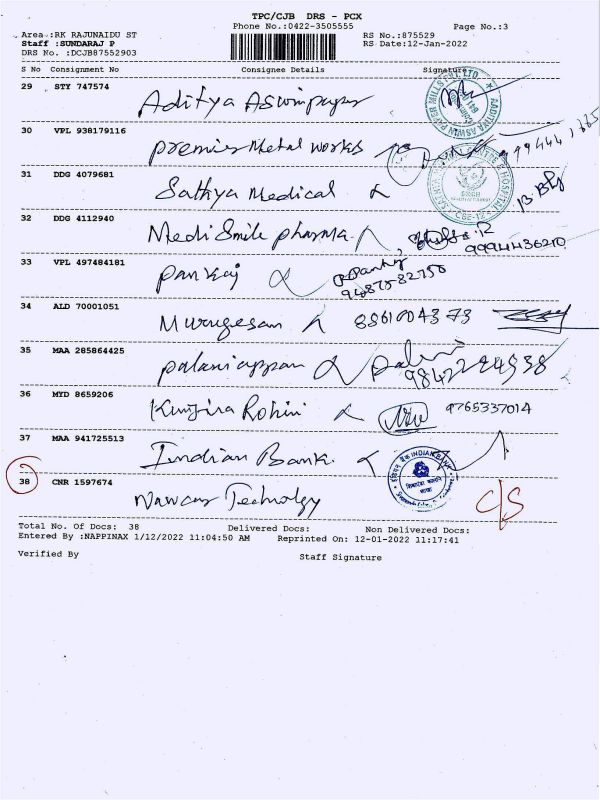 TPC/CJB DRS - PCX
Phone No.:0422-3505555 Page No.:3
Area :RK RAJUNAIDU ST RS No.:875529
Staff :SUNDARAJ P RS Date:12-Jan-2022
DRS No. :DCJB87552903
S No Consignment No Consignee Details Signature
29 STY 747574
Aditya Aswinpaper
30 VPL 938179116
premier Metal works
31 DDG 4079681
Sathya Medical
32 DDG 4112940
Medi Smile pharma 9994436210
33 VPL 497484181
pankaj 9487582750
34 ALD 70001051
Murugesan
35 MAA 285864425
palaniappan
36 MYD 8659206
Rohini 9765337014
37 MAA 941725513
Indian Bank INDIAN BANK
38 CNR 1597674
Technology C/S
Total No. Of Docs: 38 Delivered Docs: Non Delivered Docs:
Entered By :NAPPINAX 1/12/2022 11:04:50 AM Reprinted On: 12-01-2022 11:17:41
Verified By Staff Signature